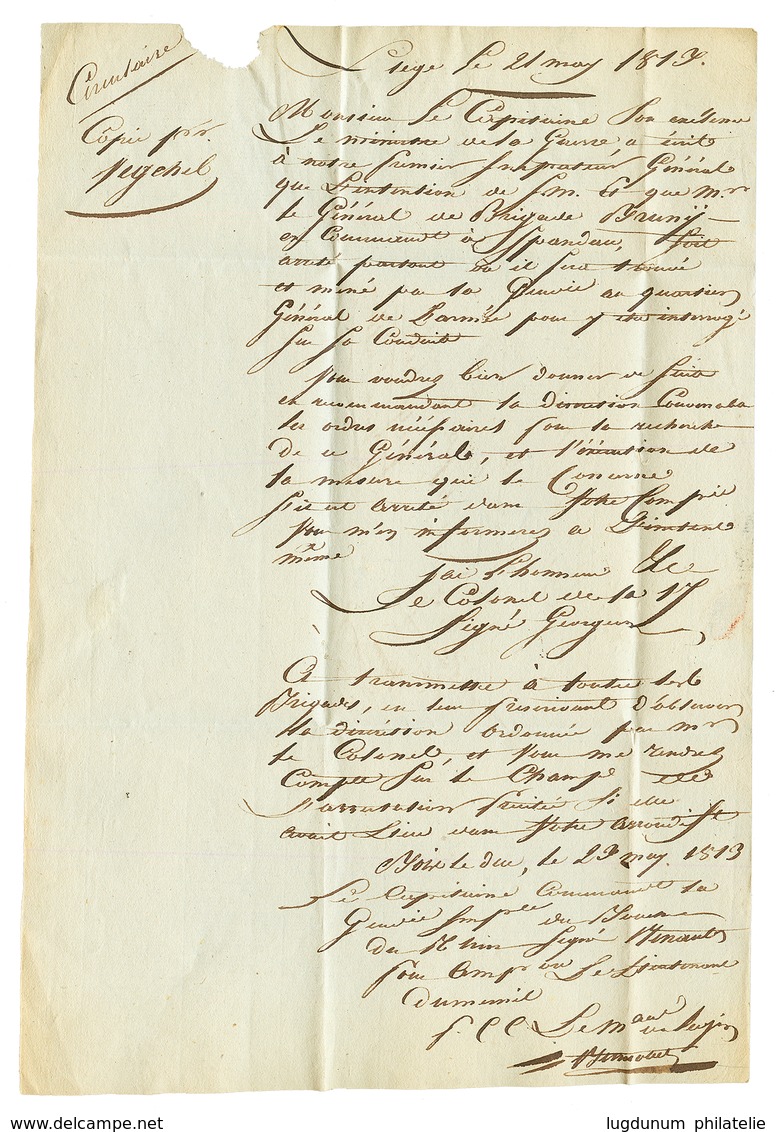 Circulaire
Copie pr.
Megchel
Liege le 21 may 1813.
Monsieur Le Capitaine Son exélence
Le ministre de la Guerre a écrit
à notre premier Inspecteur Général
que L'intention de S.M. Est que mr
le Général de Brigade Bruny
en Command à Spandau, soit
arreté partout ou il sera trouvé
et mené par la Gendie au quartier
Général de L'armée pour y etre interrogé
sur sa Conduite
Vous voudrez bien donner de suite
en recommandant la discretion Convenable
les ordres nécéssaires pour la recherche
de ce Général, et l'éxécution de
la mesure qui le Concerne
s'il est arreté dans Votre Compie
Vous m'en informerez a L'instant
même
j'ai L'honneur &c
Le Colonel de la 17
Signé Georgeon
A transmettre à toutes les
Brigades, en leur prescrivant d'observer
la discrétion ordonnée par mr
le Colonel, et Vous me rendrez
Compte sur le Champ de
L'arrestation faite Si elle
avait Lieu dans Votre arrondist
Bois le duc, le 23 may 1813
Le Capitaine Command la
Gendie Imple des Bouches
du Rhin Signé
pour Ampon Le Lieutenant
Dumesnil
P. C C Le Mal